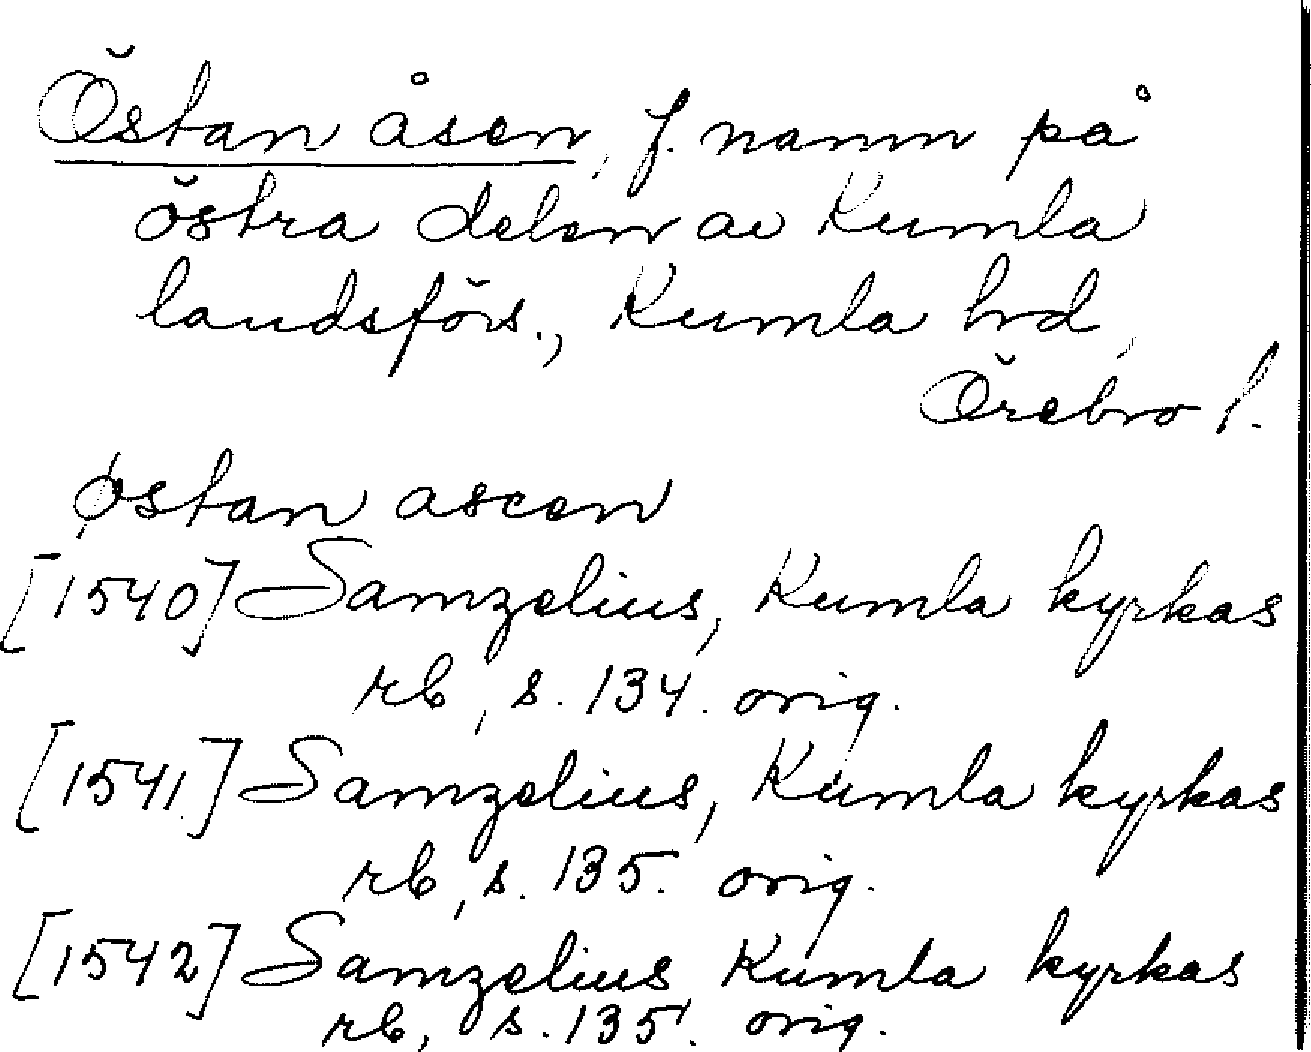 Östan åsen, f. namn på
östra delen av Kumla
landsförs., Kumla hd,
Örebro l.
østan ascen
[1540] Samzelius, Kumla kyrkas
rb, s. 134. orig.
[1541] Samzelius, Kumla kyrkas
rb, s. 135. orig.
[1542] Samzelius Kumla kyrkas
rb, s. 135. orig.